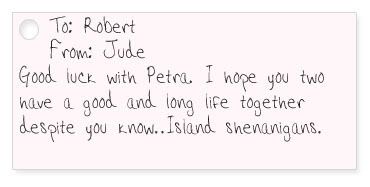 To: Robert
From: Jude
Good luck with Petra. I hope you two
have a good and long life together
despite you know..Island shenanigans.